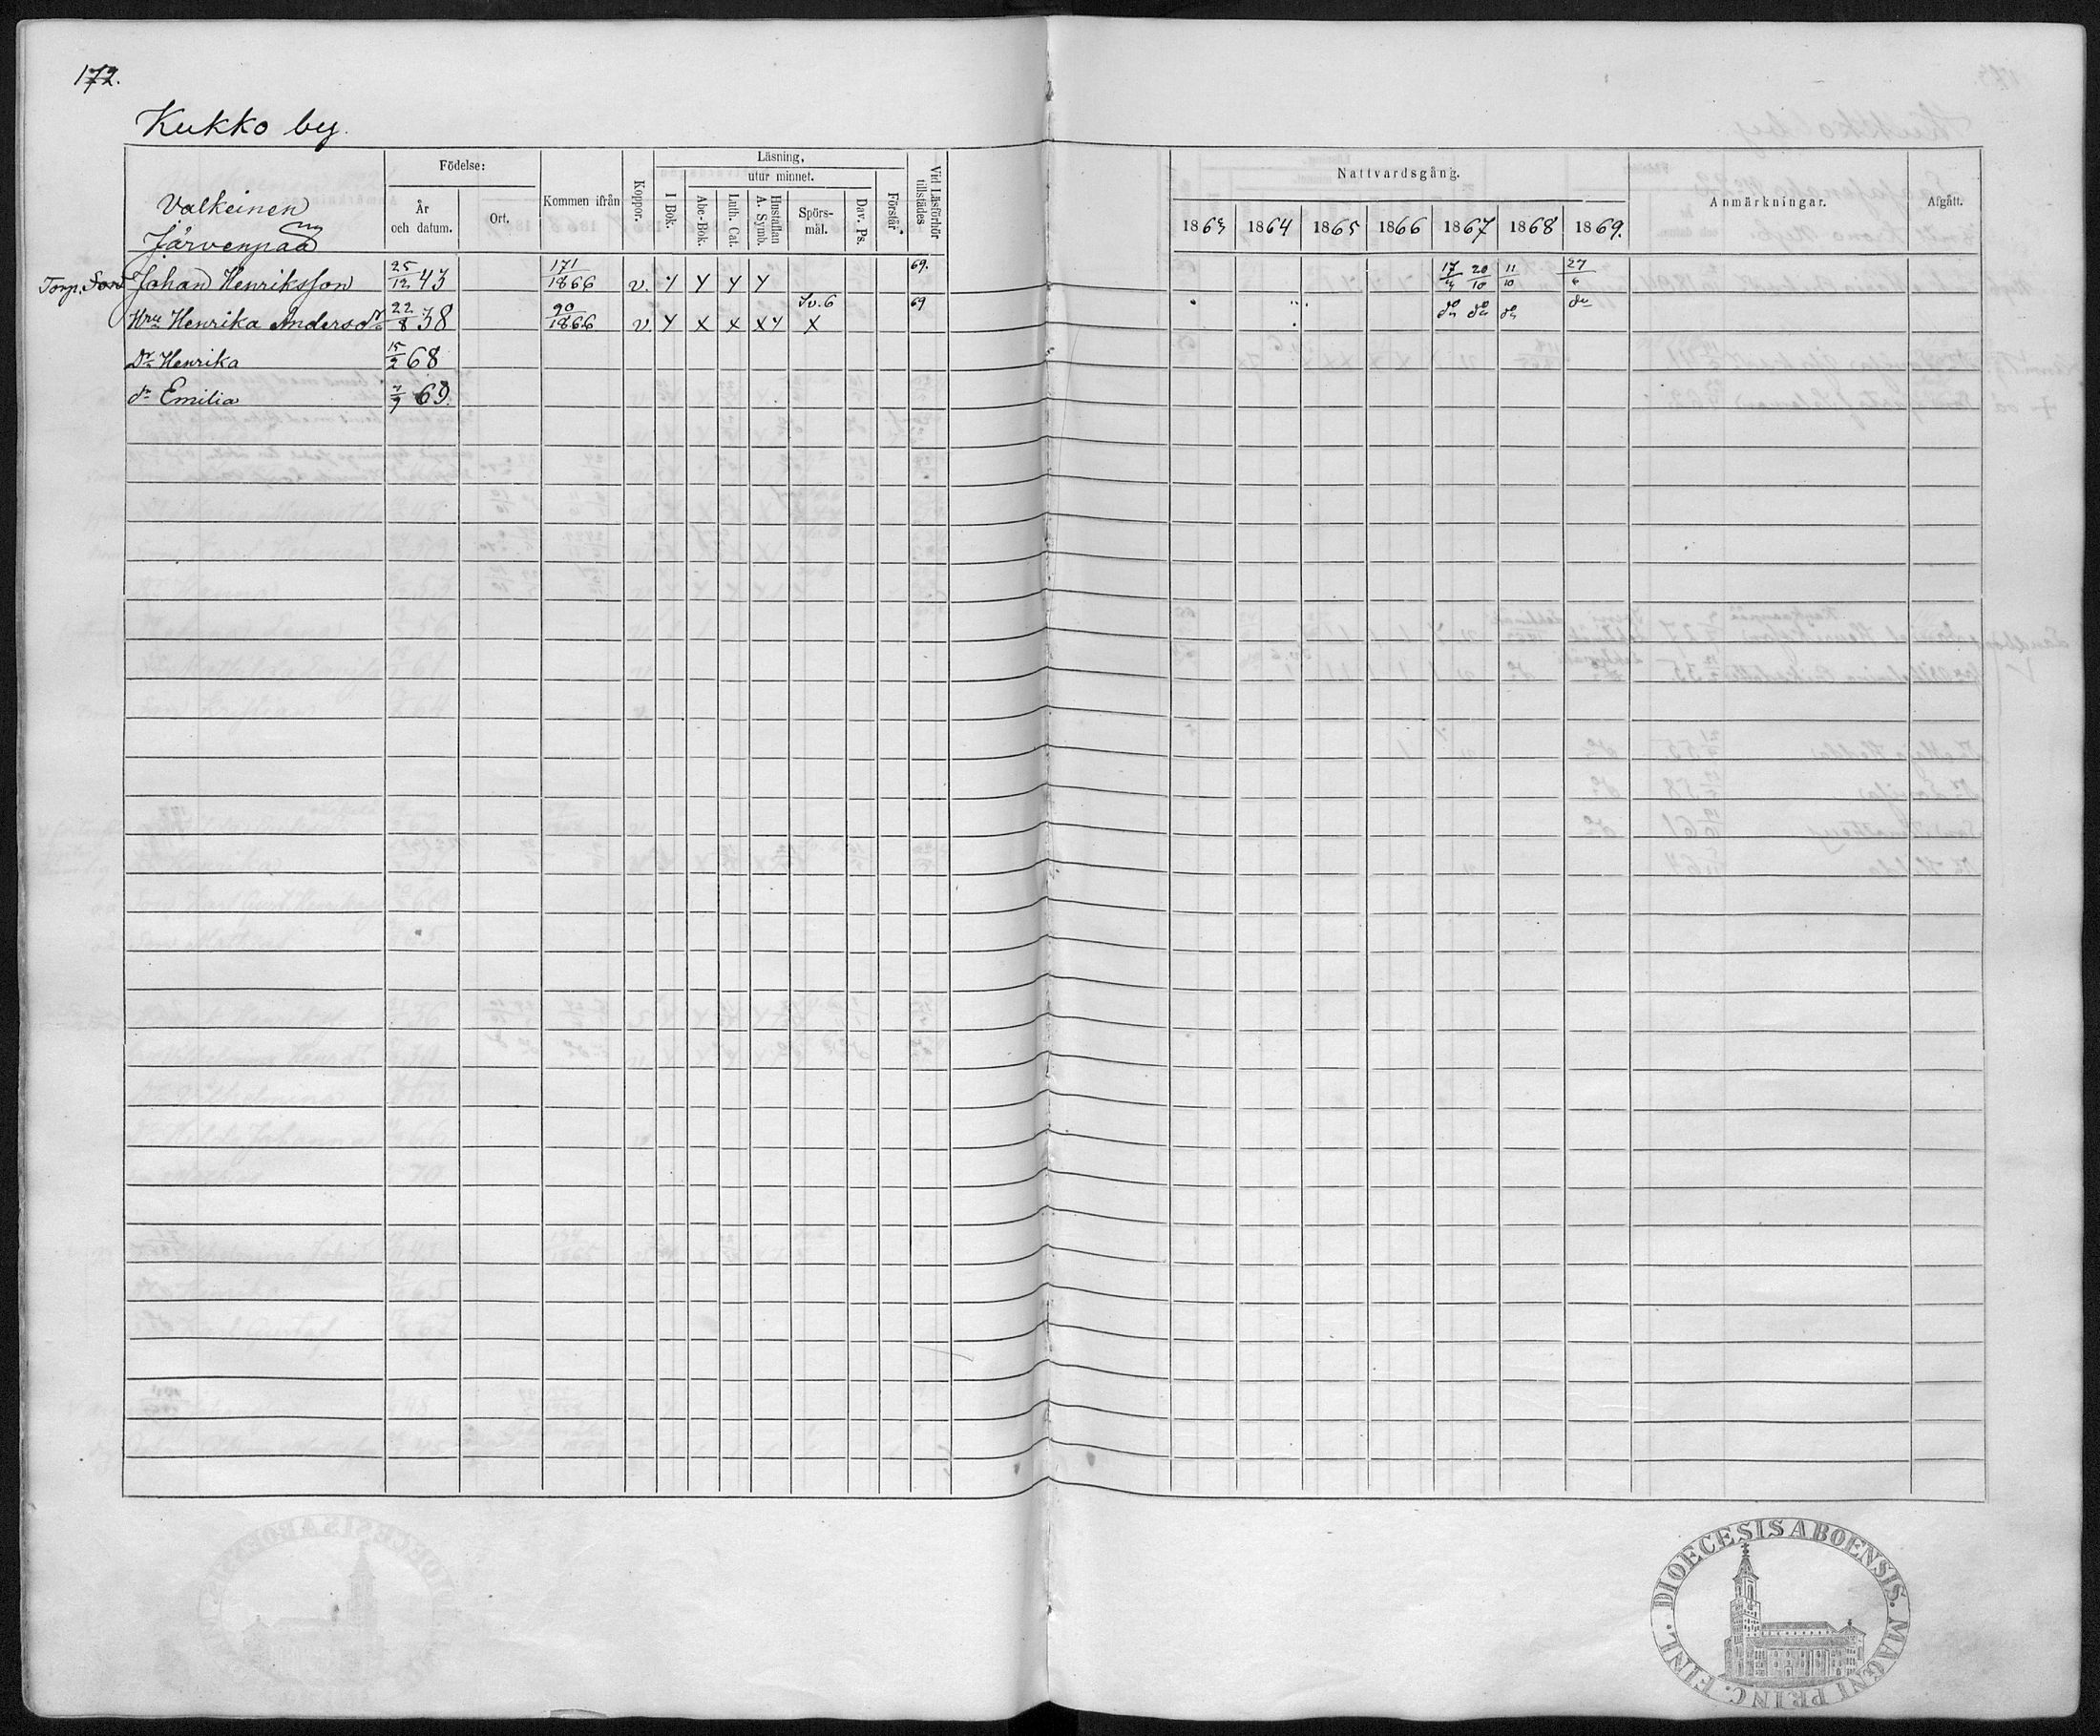 172.
Kukko by.
Födelse:
Läsning,
utur minnet.
År och datum.
Ort.
Kommen ifrån
Koppor.
I Bok.
Abc-Bok.
Luth. Cat.
Hustaflan A. Symb.
Spörs-mål.
Dav. Ps.
Förstår
Vid Läsförhör tillstädes
Nattvardsgång.
Anmärkningar.
Afgått.
1863 1864 1865 1866 1867 1868 1869.
Valkeinen
Järvenpää
Torp. Son Johan Henriksson 25/12 43 171/1866 v. Y Y Y Y 69. 17/4 20/10 11/10 27/6
Hru Henrika Andersdr 22/8 38 90/1866 v Y X X X Y Sv. 6 X 69 do do do do
Dr Henrika 15/2 68
dr Emilia 7/9 69.
DIOECESIS ABOENSIS. MAGNI PRINC. FINL.